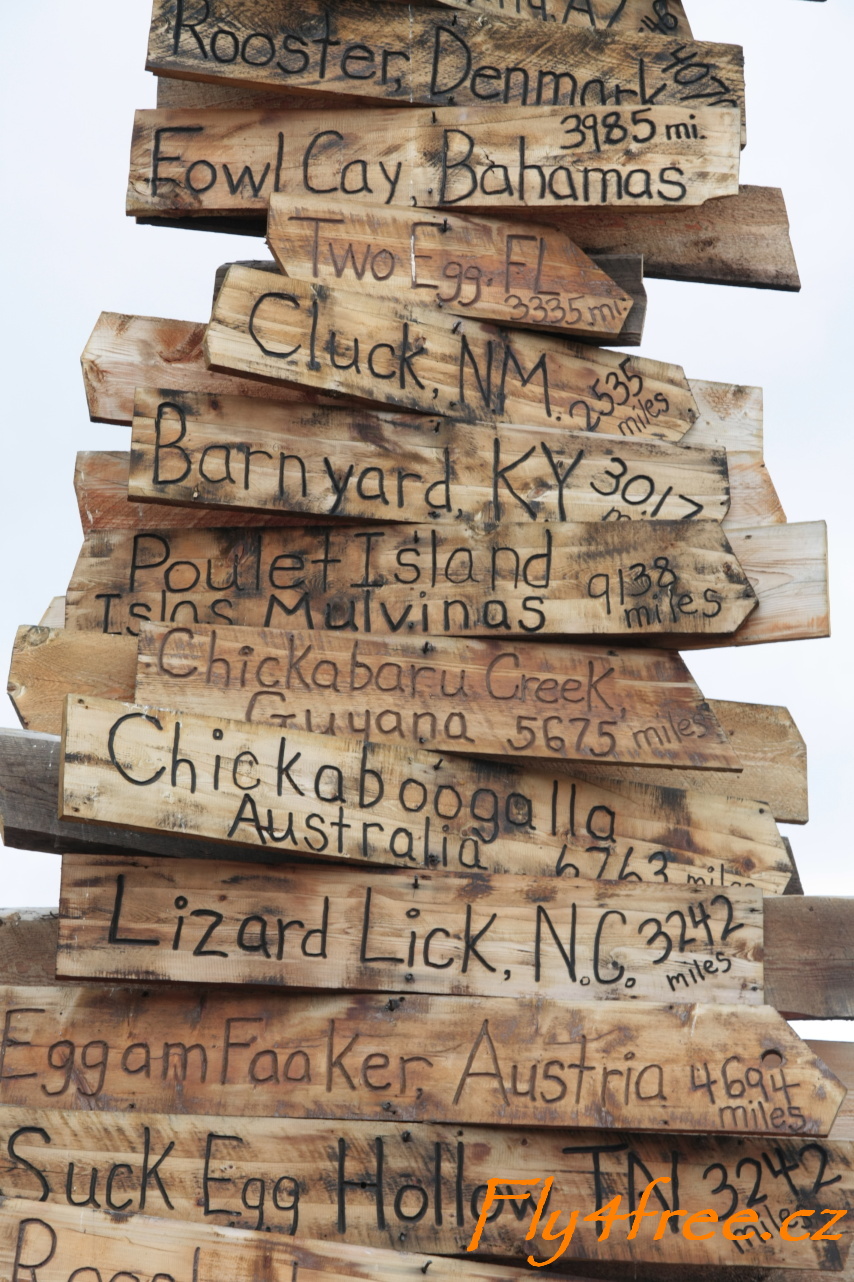 Rooster, Denmark
Fowl Cay, Bahamas 3985 mi.
Two Egg, FL
3335 mi.
Cluck, NM. 2535 miles
Barnyard, KY 3017
Poulet Island
Islas Mulvinas 9138 miles
Chickabaru Creek,
Guyana 5675 miles
Chickaboogalla
Australia 6763 miles
Lizard Lick, N.C. 3242 miles
Eggam Faaker, Austria 4694 miles
Suck Egg Hollow TN 3242 miles
Fly4free.cz